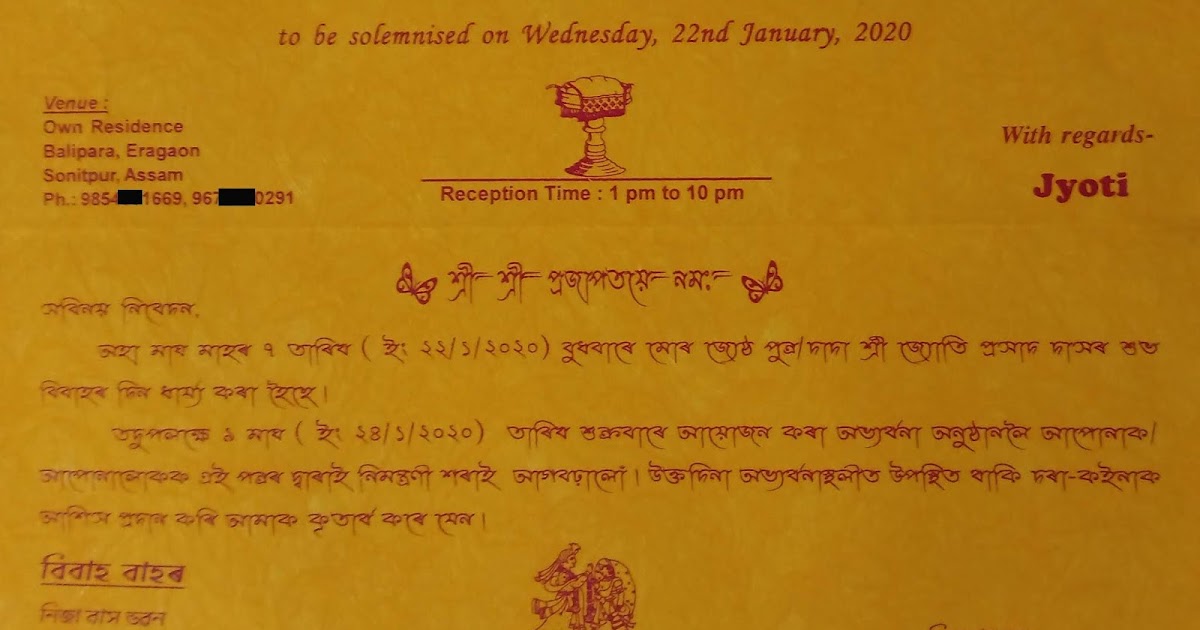 to be solemnised on Wednesday, 22nd January, 2020
Venue :
Own Residence
Balipara, Eragaon
Sonitpur, Assam
Ph.: 9854 1669, 967 0291
Reception Time : 1 pm to 10 pm
With regards-
Jyoti
শ্ৰী শ্ৰী প্ৰজাপতয়ে নমঃ
সবিনয় নিবেদন,
অহা মাঘ মাহৰ ৭ তাৰিখ ( ইং ২২/১/২০২০) বুধবাৰে মোৰ জ্যেষ্ঠ পুত্ৰ/দাদা শ্ৰী জ্যোতি প্ৰসাদ দাসৰ শুভ
বিবাহৰ দিন ধাৰ্য্য কৰা হৈছে।
তদুপলক্ষে ৯ মাঘ ( ইং ২৪/১/২০২০) তাৰিখ শুক্ৰবাৰে আয়োজন কৰা অভ্যৰ্থনা অনুষ্ঠানলৈ আপোনাক/
আপোনালোকক এই পত্ৰৰ দ্বাৰাই নিমন্ত্ৰণী শৰাই আগবঢ়ালোঁ। উক্তদিনা অভ্যৰ্থনাস্থলীত উপস্থিত থাকি দৰা-কইনাক
আশিস প্ৰদান কৰি আমাক কৃতাৰ্থ কৰে যেন।
বিবাহ বাহৰ
নিজা বাস ভৱন